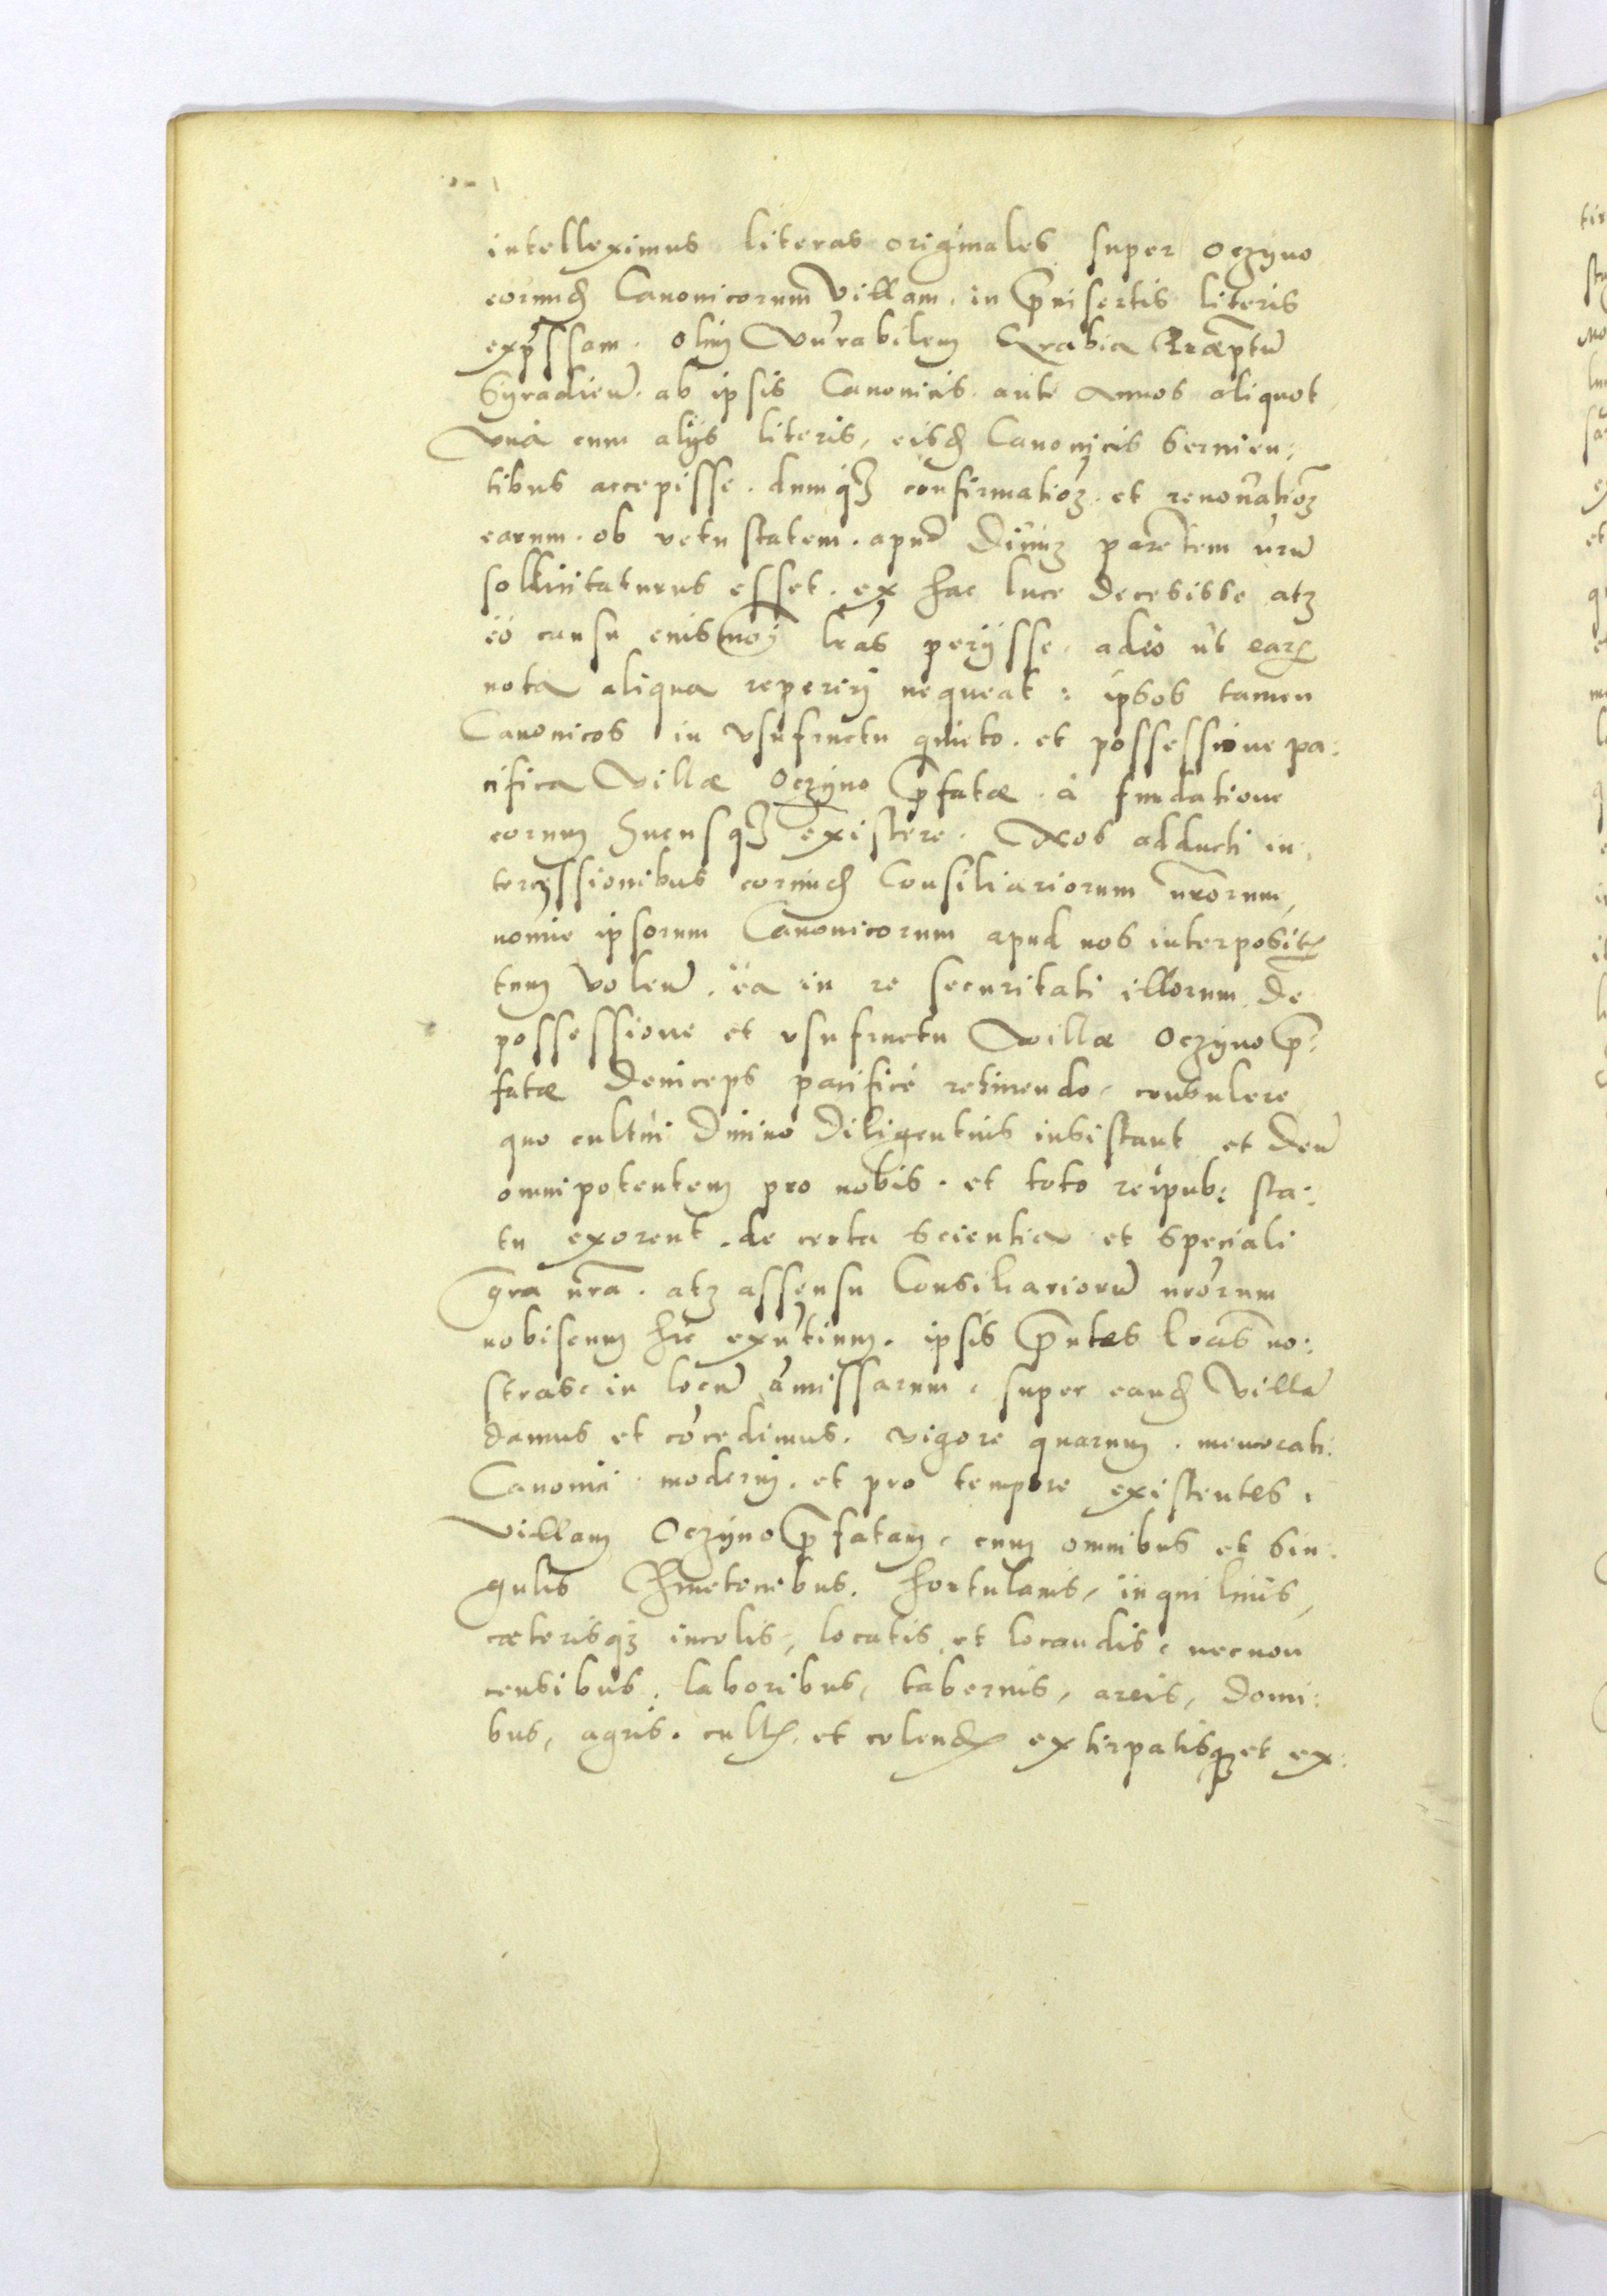 intelleximus literas originales super Oczyno
eorund Canonicorum Villam, in p̄insertis literis
exp̄ssam. olim Vn̄rabilem Krabia Præptū
Syradien̄. ab ipsis Canonicis. ante annos aliquot
Vnà cum alijs literis, eisd Canonicis seruien:
tibus accepisse. dumq3 confirmatioē3. et renouatioē3
earum. ob vetustatem. apud Diuū parentem nrū
sollicitaturus esset. ex hac luce decessisse atq3
eò casu eiusmōi lr̄as perijsse. adeò ut ear
nota aliqua reperirj nequeat: ipsos tamen
Canonicos in vsufructu quieto. et possessione pa:
cifica Villæ Oczyno p̄fatæ. à fundatione
eorum hucusq3 existere. Nos adducti in:
tercessionibus eorund Consiliariorum nr̄orum,
nomīe ipsorum Canonicorum apud nos interposit
tum volen̄. ea in re securitati illorum de
possessione et vsufructu Villæ Oczyno p̄:
fatæ deniceps pacificè retinendo, consulere
quo cultui diuino diligentius insistant et deū
omnipotentem pro nobis. et toto reipub: sta:
tu exorent. de certa scientia et speciali
gr̄a nr̄a. atq3 assensu Consiliariorū nr̄orum
nobiscum hic exn̄tium. ipsis p̄ntes lr̄as no:
stras, in locū amissarum, super eand Villā
damus et cōcedimus. vigore quarum. memorati
Canonici modernj. et pro tempore existentes,
Villam Oczyno p̄fatam, cum omnibus et sin:
gulis Kmetonibus. hortulanis, inquilinis,
cæterisq3 incolis, locatis et locandis, necnon
censibus, laboribus, tabernis, areis, domi:
bus, agris. cult, et colend extirpatisq3 et ex: